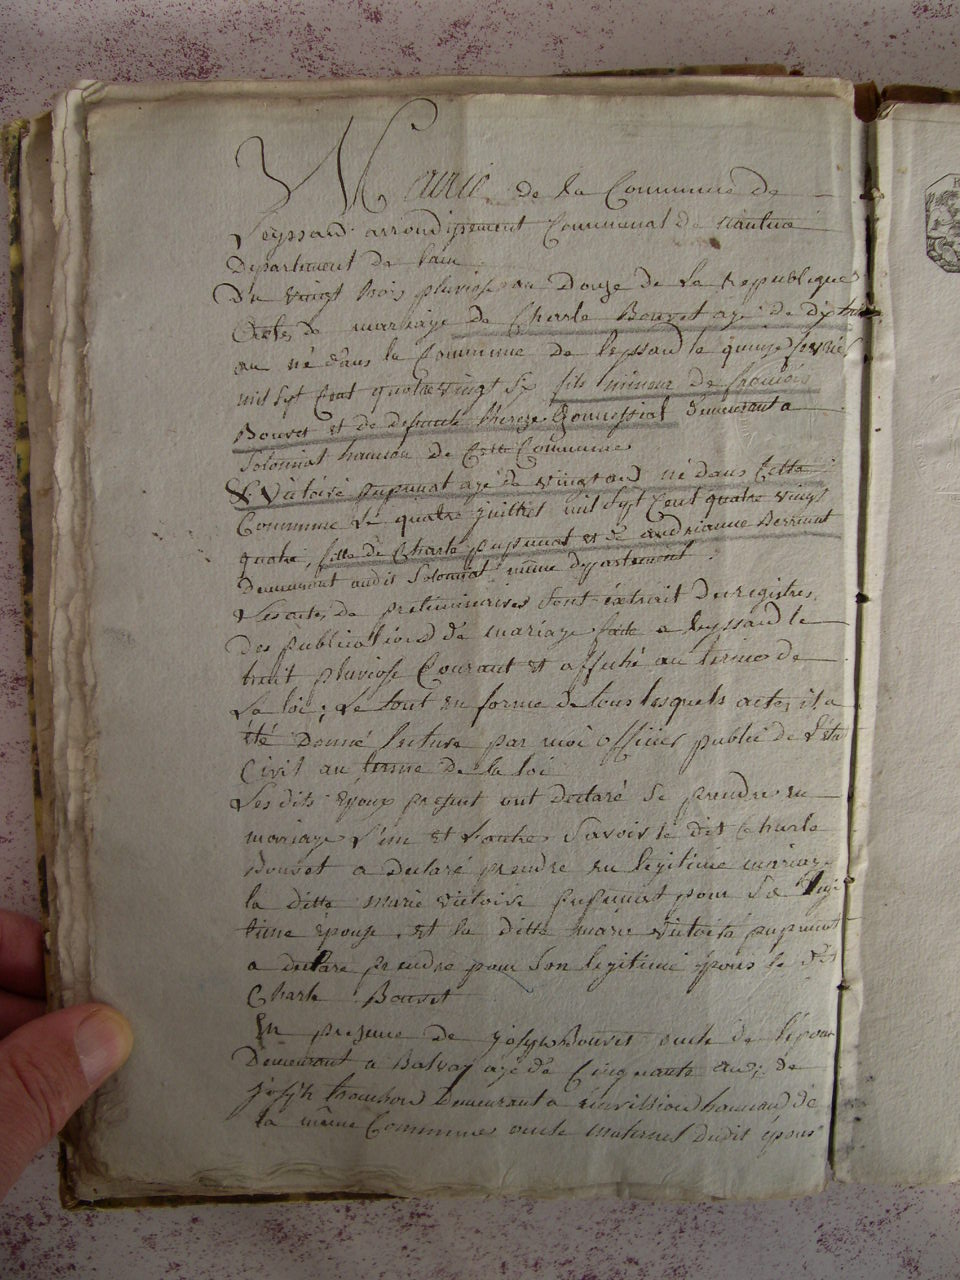 Mairie de la Commune de
Leyssard arrondissement Communal de nantua
Departement de lain
Du vingt trois pluviose an Douze de la republique
Acte de mariage de Charle Bouvet agé de dix huit
an né dans la Commune de leyssard le quinze fevrier
mil sept Cent quatre vingt six fils mineur de francois
Bouvet et de defunte thereze demeurant a
Solomiat hameau de Cette Commune
& Victoire pupunat agé de vingt ans né dans Cette
Commune Le quatre juillet mil sept Cent quatre vingt
quatre, fille de Charle pupunat et de andrianne
Demeurant audit Solomiat même departement.
Les actes de preliminaires sont extrait des registres
Des publications de mariage faite a leyssard le
huit pluviose Courant et affiché au terme de
La loi; Le tout en forme de tous lesquels actes il a
été Donné lecture par moi officier public de l'état
Civil au terme de la loi
Les dits epoux present ont declaré se prendre en
mariage L'un et L'autre Savoir le dit Charle
Bouvet a declaré prendre en legitime mariage
la ditte marie victoire pupunat pour Sa legi
time épouse, et la ditte marie victoire pupunat
a declaré prendre pour Son legitime epoux le dit
Charle Bouvet
En presence de josep Bouvet oncle de l'epoux
Demeurant a Balvay agé de Cinquante ans; de
joseph Demeurant a hameau de
la même Commune oncle maternel Dudit époux